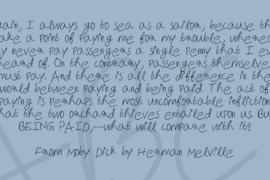 ain, I always go to sea as a sailor, because th
ake a point of paying me for my trouble, wherea
y never pay passengers a single penny that I ev
heard of. On the contrary, passengers themselve
must pay. And there is all the difference in the
world between paying and being paid. The act of
paying is perhaps the most uncomfortable infliction
that the two orchard thieves entailed upon us. Bu
BEING PAID,--what will compare with it?
From Moby Dick by Herman Melville